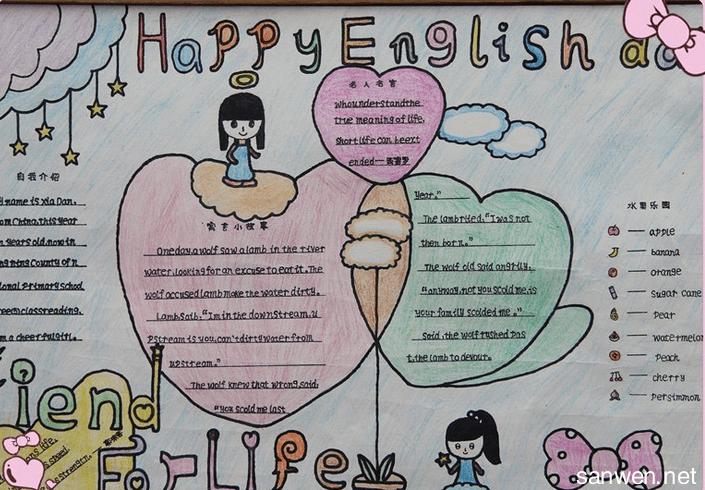 Happy English
名人名言
whounderstandthe
true meaning of life,
short life can beext
ended—西塞罗
自我介绍
y name is Xia Dan.
om China.this year
n years old.now in
ng ning County of n
ional primary school
reem classreading.
m a cheerfulgirl.
寓言小故事
One day.a wolf saw a lamb in the river
water.looking for an excuse to eat it. The
wolf accused lamb make the water dirty.
Lamb said: "I'm in the downstream, u
pstream is you.can't dirty water from
upstream."
The wolf knew that wrong.said:
"you scold me last
year."
The lamb ryled, "I was not
then born."
The wolf old said angrily,
"anyway, not you scold me, is
your family scolded me."
Said .the wolf rushed pas
t, the lamb to devour.
水果乐园
apple
banana
orange
sugar cane
pear
watermelon
peach
cherry
persimmon
iend
For Life
sanwen.net